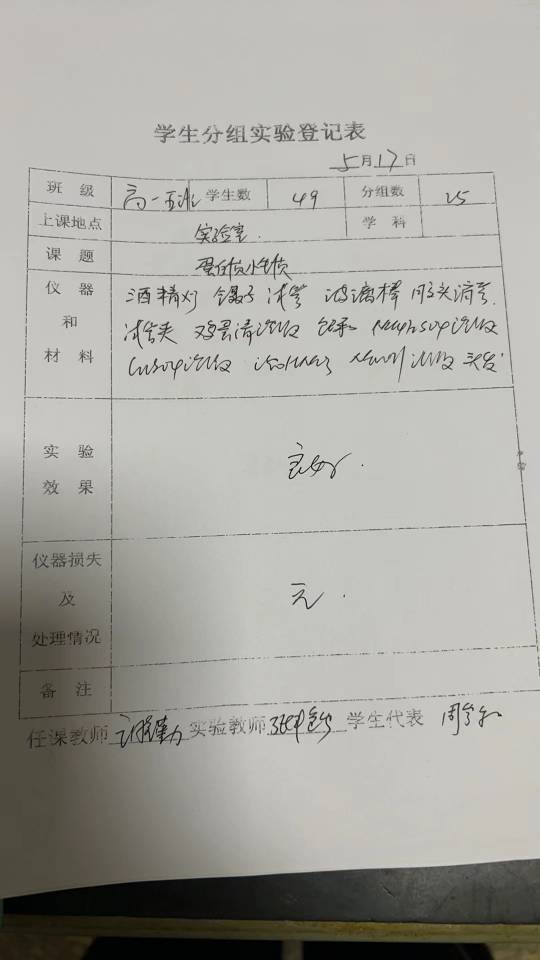 学生分组实验登记表
5月17日
班 级 高一五班 学生数 49 分组数 25
上课地点 实验室. 学 科
课 题 蛋白质性质
仪 器 和 材 料 酒精灯 镊子 试管 玻璃棒 胶头滴管.
试管夹 鸡蛋清溶液 溶液
CuSO4溶液 浓HNO3 NaOH溶液 头发
实 验 效 果 良好.
仪器损失 及 处理情况 无.
备 注
任课教师 实验教师 学生代表